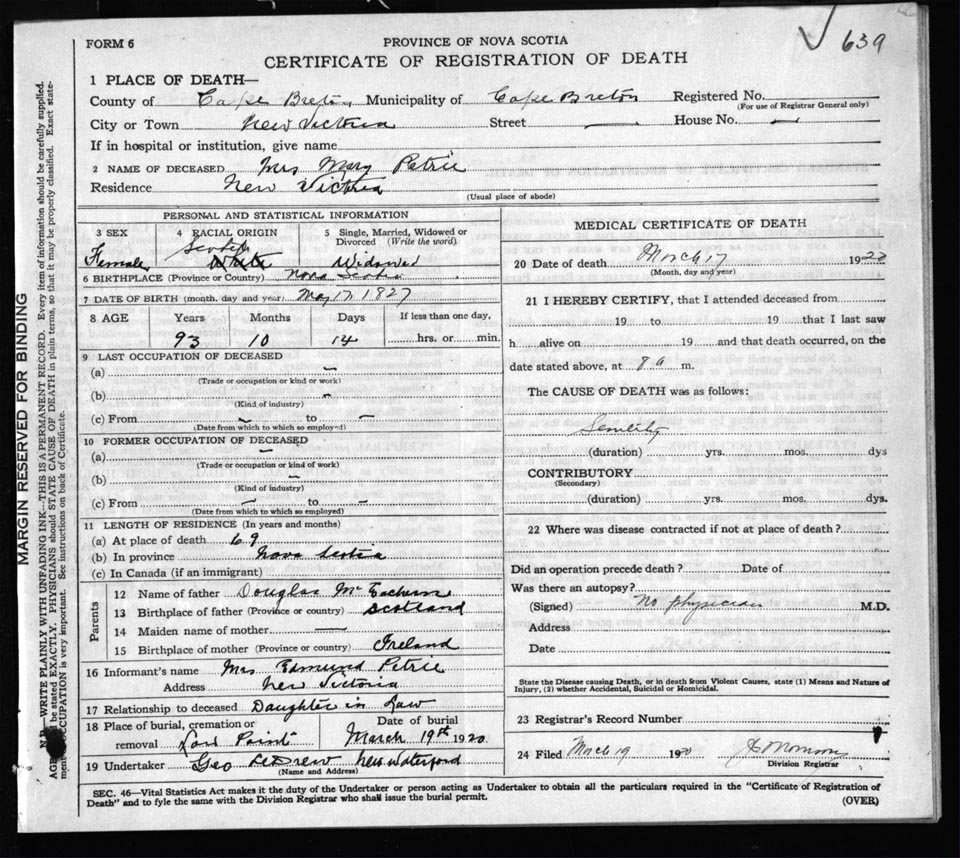 639
FORM 6
PROVINCE OF NOVA SCOTIA
CERTIFICATE OF REGISTRATION OF DEATH
1 PLACE OF DEATH—
County of Cape Breton Municipality of Cape Breton Registered No.
(For use of Registrar General only)
City or Town New Victoria Street — House No. —
If in hospital or institution, give name
2 NAME OF DECEASED Mrs Mary Petrie
Residence New Victoria
(Usual place of abode)
PERSONAL AND STATISTICAL INFORMATION
3 SEX 4 RACIAL ORIGIN 5 Single, Married, Widowed or Divorced (Write the word)
Female Scotch White Widowed
6 BIRTHPLACE (Province or Country) Nova Scotia
7 DATE OF BIRTH (month, day and year) May 17 1827
8 AGE Years Months Days If less than one day,
93 10 14 hrs. or min.
9 LAST OCCUPATION OF DECEASED
(a) —
(Trade or occupation or kind or work)
(b) —
(Kind of industry)
(c) From — to —
(Date from which to which so employed)
10 FORMER OCCUPATION OF DECEASED
(a) —
(Trade or occupation or kind of work)
(b) —
(Kind of industry)
(c) From — to —
(Date from which to which so employed)
11 LENGTH OF RESIDENCE (In years and months)
(a) At place of death 69
(b) In province Nova Scotia
(c) In Canada (if an immigrant)
Parents
12 Name of father Douglas McEachern
13 Birthplace of father (Province or country) Scotland
14 Maiden name of mother —
15 Birthplace of mother (Province or Country) Ireland
16 Informant's name Mrs Edmund Petrie
Address New Victoria
17 Relationship to deceased Daughter in Law
18 Place of burial, cremation or removal Low Point
Date of burial March 19th 1920
19 Undertaker Geo New Waterford
(Name and Address)
MEDICAL CERTIFICATE OF DEATH
20 Date of death March 17 19
(Month, day and year)
21 I HEREBY CERTIFY, that I attended deceased from
19 to 19 that I last saw
h alive on 19 and that death occurred, on the
date stated above, at 8 a m.
The CAUSE OF DEATH was as follows:
Senility
(duration) yrs. mos. dys
CONTRIBUTORY
(Secondary)
(duration) yrs. mos. dys.
22 Where was disease contracted if not at place of death?
Did an operation precede death? Date of
Was there an autopsy?
(Signed) No physician M.D.
Address
Date
State the Disease causing Death, or in death from Violent Causes, state (1) Means and Nature of
Injury, (2) whether Accidental, Suicidal or Homicidal.
23 Registrar's Record Number
24 Filed March 19 1920
Division Registrar
SEC. 46—Vital Statistics Act makes it the duty of the Undertaker or person acting as Undertaker to obtain all the particulars required in the "Certificate of Registration of
Death" and to fyle the same with the Division Registrar who shall issue the burial permit.
(OVER)
MARGIN RESERVED FOR BINDING
N.B.—WRITE PLAINLY WITH UNFADING INK—THIS IS A PERMANENT RECORD. Every item of information should be carefully supplied.
AGE should be stated EXACTLY. PHYSICIANS should STATE CAUSE OF DEATH in plain terms, so that it may be properly classified. Exact statement
of OCCUPATION is very important. See instructions on back of Certificate.